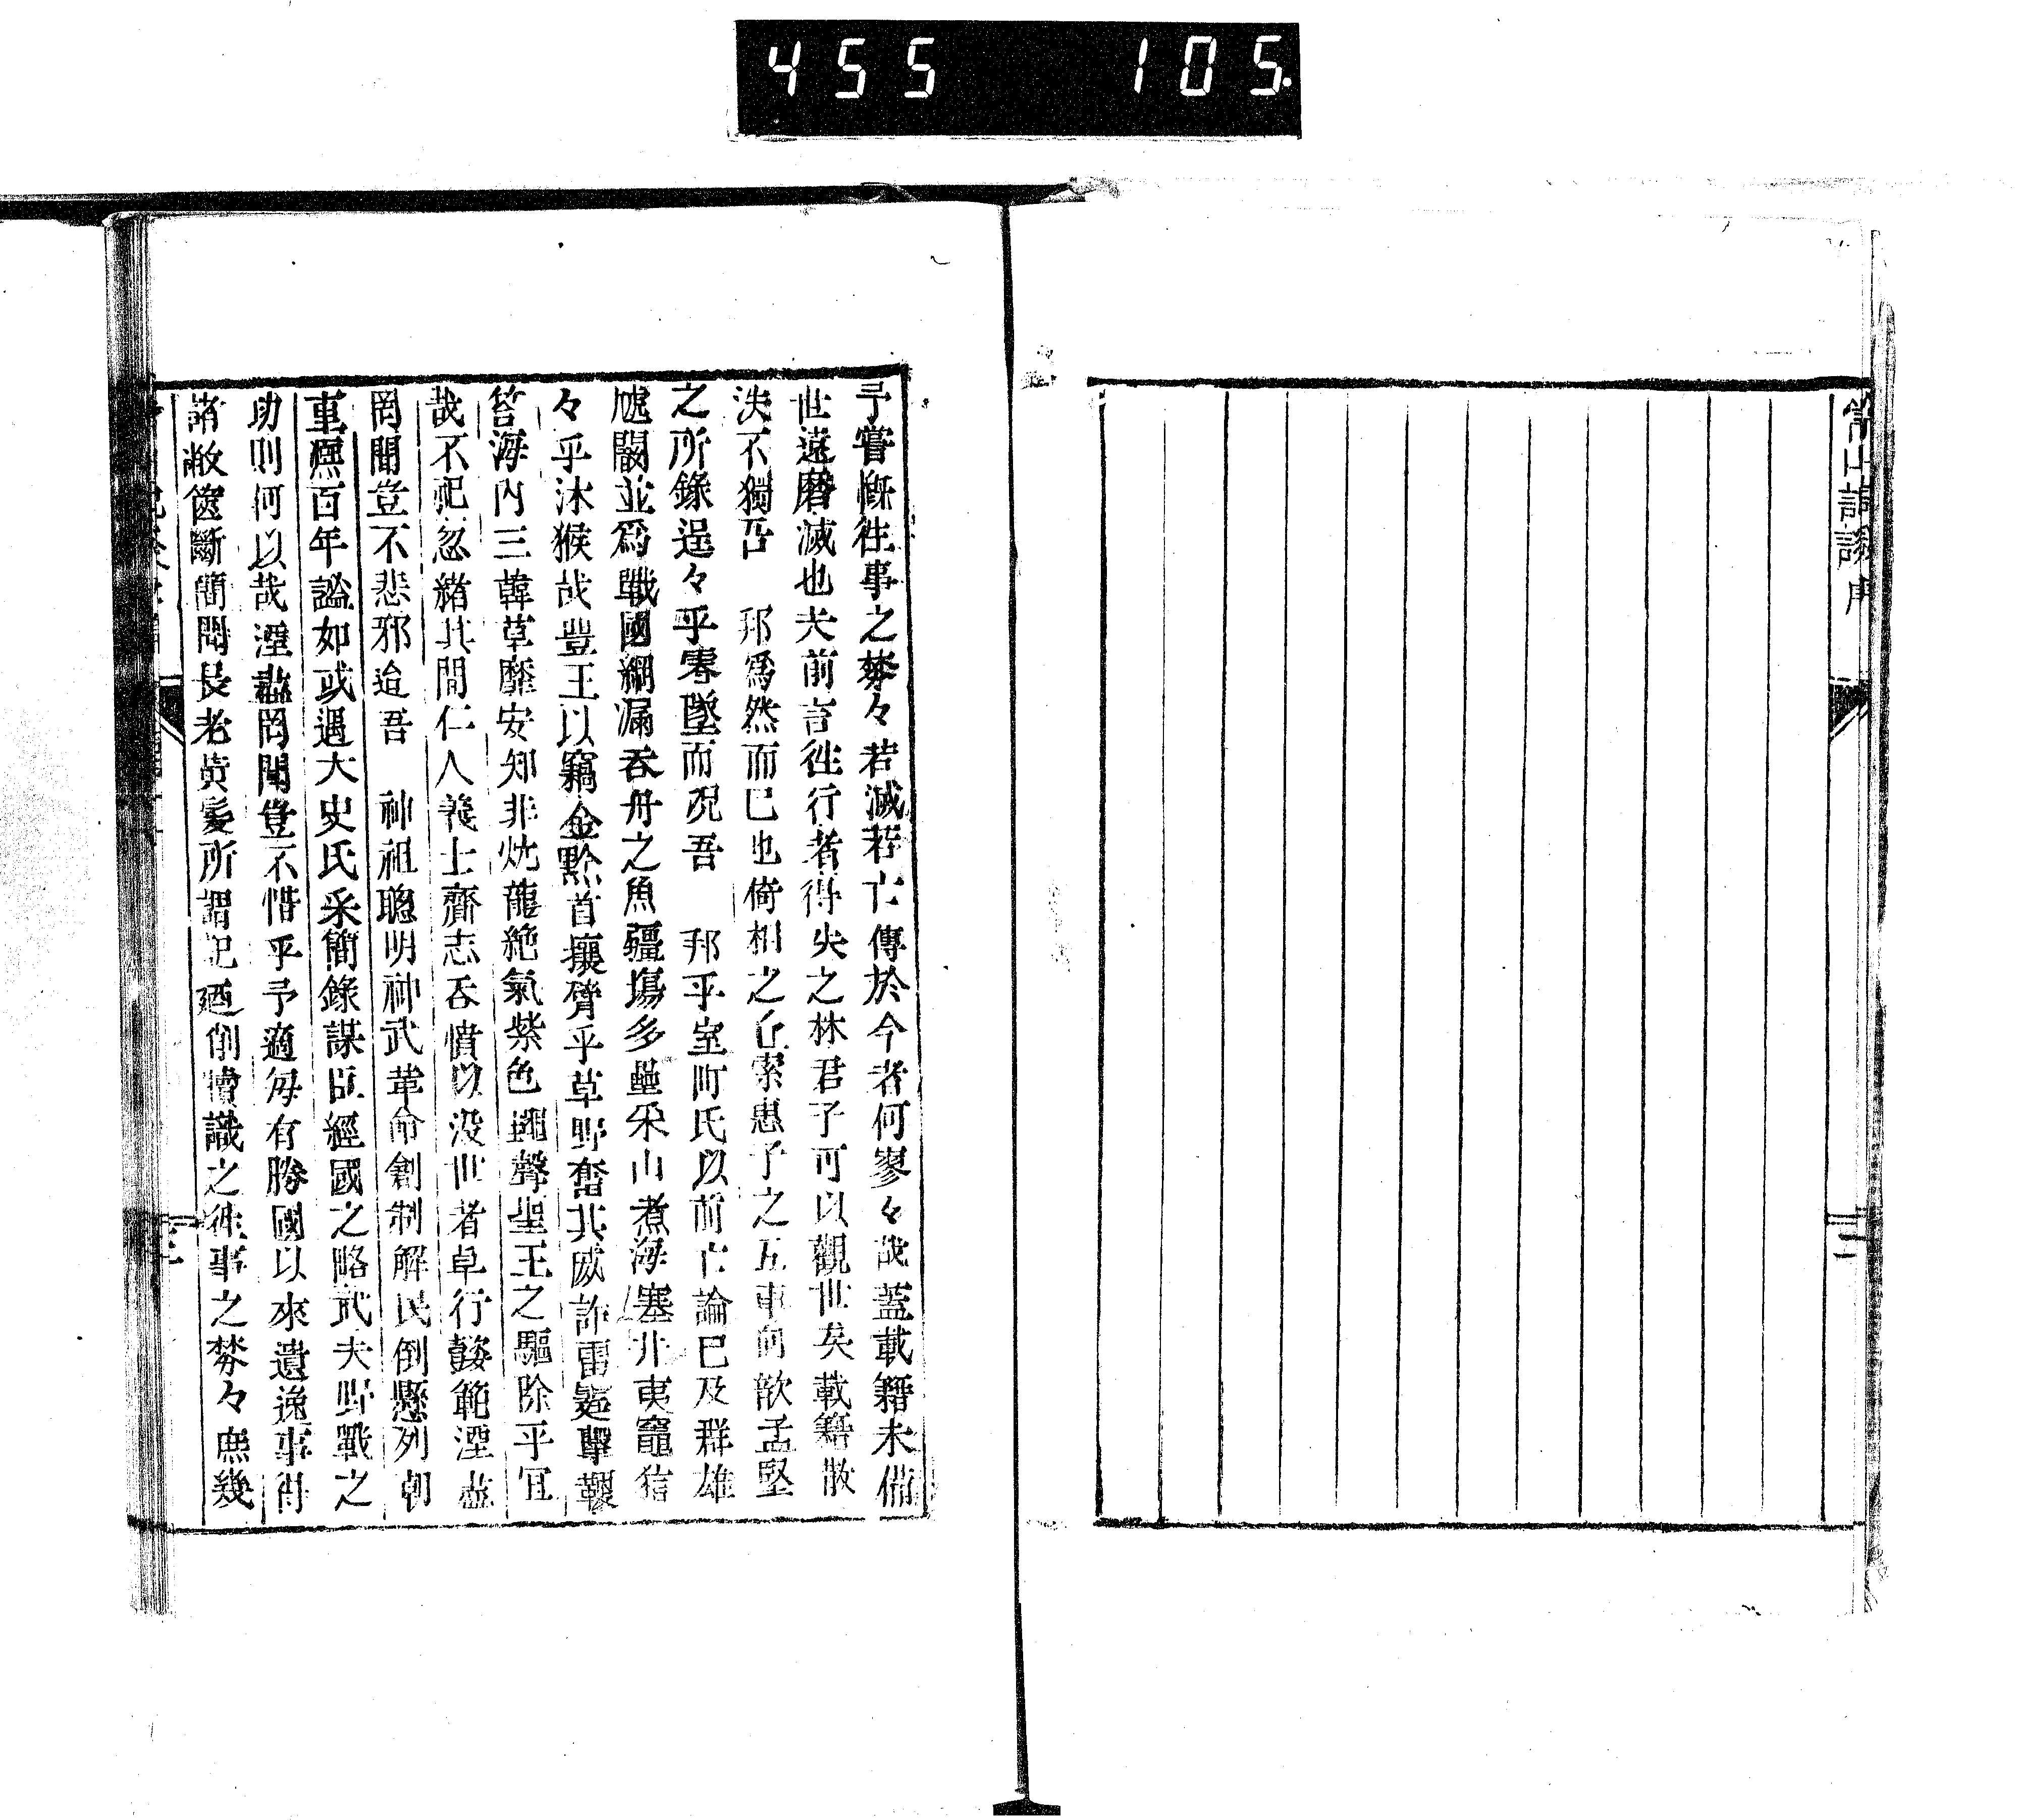 455 105.
常山
予嘗慨往事之棼々若滅若亡傳於今者何寥々哉蓋載籍未備
世遠磨滅也夫前言往行者得失之林君子可以觀世矣載籍散
泆不獨吾 邦爲然而已也倚相之丘索惠子之五車向歆孟堅
之所錄逞々乎零墜而况吾 邦乎室町氏以前亡論已及群雄
虓闞並爲戰國綱漏吞舟之魚疆場多壘采山煮海塞井夷竈狺
々乎沐猴哉豈王以竊金黔首攘臂乎草野奮其威詐雷擊
答海内三韓草靡安知非炕龍絶氣紫色䵷聲聖王之驅除乎宜
哉不祀忽緒其間仁人義士齎志吞憤以没世者卓行懿範湮盡
罔聞豈不悲邪迨吾 神祖聰明神武革命創制解民倒懸列朝
重熙百年謐如或遇大史氏采簡錄謀臣經國之略武夫野戰之
助則何以哉湮盡罔聞豈不惜乎予適每有勝國以來遺逸事得
諸敝篋斷簡聞長老黃髮所謂記廼削牘識之往事之棼々庶幾